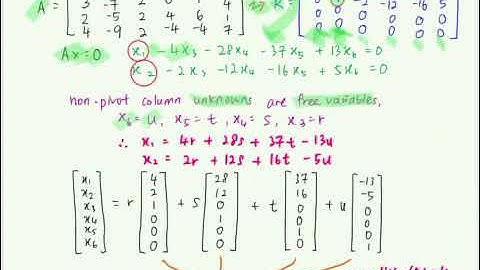 A = [ 3 -7 2 0 1 4
2 -5 2 4 6 1
4 -9 2 -4 -4 7 ] R = [ -2 -12 -16 5
0 0 0 0 0 0 ]
Ax=0 x₁ - 4x₃ - 28x₄ - 37x₅ + 13x₆ = 0
x₂ - 2x₃ - 12x₄ - 16x₅ + 5x₆ = 0
non-pivot column unknowns are free variables,
x₆=u, x₅=t, x₄=s, x₃=r
∴ x₁ = 4r + 28s + 37t - 13u
x₂ = 2r + 12s + 16t - 5u
[x₁ x₂ x₃ x₄ x₅ x₆] = r [4 2 1 0 0 0] + s [28 12 0 1 0 0] + t [37 16 0 0 1 0] + u [-13 -5 0 0 0 1]